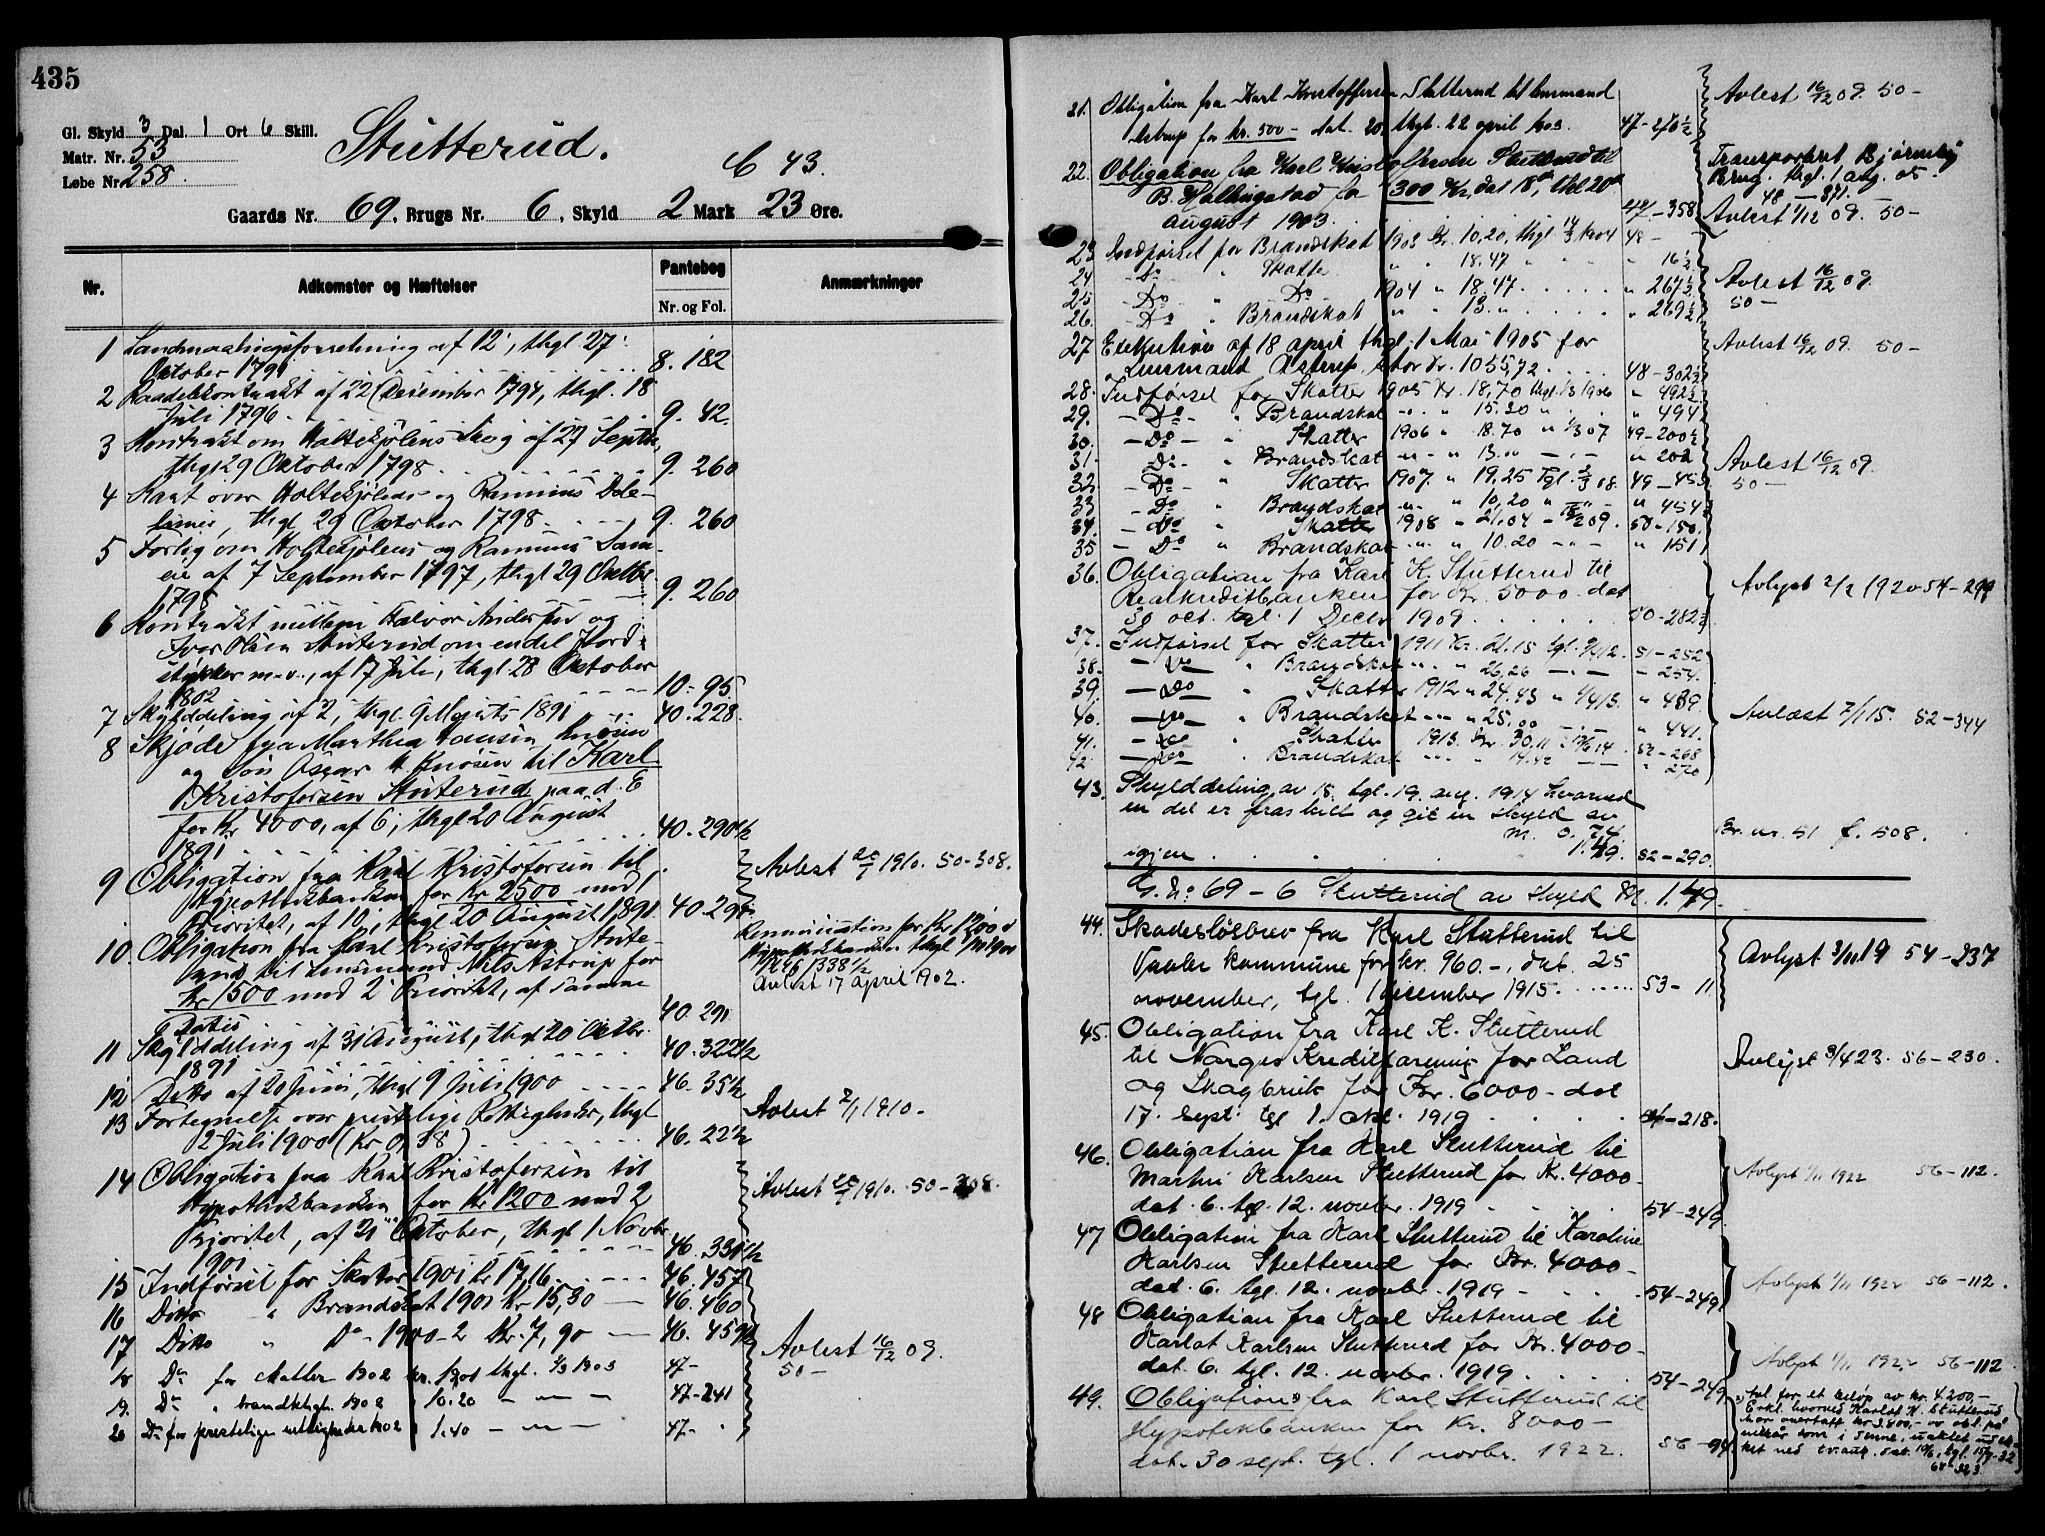 435
Gl. Skyld 3 Dal. 1 Ort 6 Skill.
Matr. Nr. 53
Løbe Nr. 258.
Stutterud.
43.
Gaards Nr. 69, Brugs Nr. 6, Skyld 2 Mark 23 Øre.
Nr. Adkomster og Hæftelser Pantebog Nr. og Fol. Anmærkninger
1 Landmaalingsforretning af 12', thgl 27'
Oktober 1791 8. 182
2 Kaadekontrakt af 22 December 1794, thgl. 18
Juli 1796. 9. 42.
3 Kontrakt om Holtekjølens Skog af 27 Septbr,
thgl 29 Oktober 1798 9. 260
4 Kart over Holtekjølens og
thgl 29 Oktober 1798 9. 260
5 Forlig om Holtekjølens og Ramnus Sam-
eie af 7 September 1797, thgl 29 Oktbr
1798 9. 260
6 Kontrakt mellem Halvor Andersen og
Iver Olsen Stuterud om endel Jord-
stykker m.v., af 17 Juli, thgl. 28 Oktober
1802 10. 95
7 Skylddeling af 2, thgl. 9 Marts 1891 40. 228.
8 Skjøde fra Marthea Hansen
og Søn Oscar til Karl
Kristofersen Stuterud paa d. E
for Kr 4000, af 6', thgl 20 August
1891 40. 290½
9 Obligation fra Karl Kristofersen til
Hypothekbanken for Kr 2500 med 1
Prioritet, af 10', thgl 20 August 1891 40. 291
Avlest 20/7 1910. 50-308.
10. Obligation fra Karl Kristofersen Stute-
rud til Lensmand Nils Astrup for
Kr 1500 med 2' Prioritet, af samme
Datis 40. 291
Avlest 17 April 1902.
11 Skylddeling af 31 August, thgl 20 Oktbr.
1891 40. 322½
12 Ditto af 20 Juni, thgl 9 Juli 1900 46. 35½
13 Fortegnelse over prestelige Rettigheder, thgl
2 Juli 1900 (Kr 0,38) 46. 22½
Avlest 7/1 1910.
14 Obligation fra Karl Kristofersen til
Hypothekbanken for Kr 1200 med 2
Prioritet, af 21 Oktober, thgl 1 Novbr
1901 46. 331½
Avlest 20/7 1910. 50-308.
15 Indførsel for Skatter 1901 kr 17,16. 46. 457
16 Ditto " Brandskat 1901 Kr 15,30 46. 460
17 Ditto " Do 1900-2 Kr. 7,90 46. 459½
Avlest 16/12 09.
50-
18 Do for skatter 1902 kr. thgl. 1903 47-
19. Do " brandktgt. 1902 10.20 - " - 47-241
20 Do for prestelige rettigheder 1902 1.40 - " - 47-
21. Obligation fra Karl Kristoffersen Stutterud til lensmand
Astrup for kr. 500- dat. 20. thgl. 22 april 1903. 47-276½
Avlest 16/12 09. 50-
22. Obligation fra Karl Kristoffersen Stutterud til
B. Hallingstad for 300 Kr. dat 18de, thgl 20de
august 1903 47-358
Transporteret Bjørneby
Brug. thgl. 1 aug. 05
48-371.
Avlest 1/12 09. 50-
23 Indførsel for Brandskat 1903 Kr. 10,20, thgl 14/3 1904 48-
24 - Do " Skatte " " 18.47 " 16½
25 - Do " Do 1904 " 18.47. " 267½
26. - Do " Brandskat " " 13. " " 269½
Avlest 16/12 09.
50-
27 Exekution af 18 april thgl. 1 Mai 1905 for
Lensmand Astrup, stor kr. 1055,72 48-302½
Avlest 16/12 09. 50-
28. Indførsel for Skatter 1905 Kr. 18,70 thgl. 1906 " 492½
29. - Do - " Brandskat " " 15.30 " " 494
30. - Do - " Skatter 1906 " 18.70 " 07 49-200½
31. Do - " Brandskat " - " 13.00 - " - " 202
32. - Do - " Skatter 1907. " 19,25 Tgl. 2/3 08. 49-453
33 - Do " Brandskat " " 10,20 " " " 454
34. - Do " Skatter 1908 " 21,04 09. 50-150.
35 - Do " Brandskat " " 10.20 - " - " 151
Avlest 16/12 09.
50-
36. Obligation fra Karl K. Stutterud til
Realkreditbanken for Kr. 5000. dat
30 oct. tgl. 1 Decbr 1909 50-282½
Avlyst 2/2 1920 54-299
37. Indførsel for Skatter 1911 Kr. 21.15 tgl. 12. 51-252
38. - Do " Brandskat " " 26,26 - " - " 254.
39. - Do " Skatter 1912 " 24.43 " 1/4 13. " 439.
40. - Do " Brandskat " " 25,00 " 441.
41. - Do " Skatter 1913. Kr. 30,11 14. 52-268
42. - Do " Brandskat " " " 270
Avlæst 7/1 15. 52-344
43. Skylddeling av 18. tgl. 19. aug. 1914 hvorved
en del er fraskilt og git en skyld av
m. 0.74
igjen 1.49. 52-290.
Br. nr. 51 f. 508.
G. No 69-6 Stutterud av skyld M. 1.49.
44. Skadesløsbrev fra Karl Stutterud til
Vaaler kommune for kr. 960.-, dat. 25
november, tgl. 1 december 1915. 53-11.
Avlyst 3/11 19 54-237
45. Obligation fra Karl K. Stutterud
til Norges Kreditforening for Land
og Skogbruk for Kr. 6000- dat
17. sept. tgl 1. okt. 1919 54-218.
Avlyst 3/4 23. 56-230.
46. Obligation fra Karl Stutterud til
Martin Karlsen Stutterud for Kr. 4000-
dat. 6. tgl. 12. novbr. 1919 54-249
Avlyst 1/11 1922 56-112.
47 Obligation fra Karl Stutterud til Karoline
Karlsen Stutterud for Kr. 4000-
dat. 6. tgl. 12. novbr. 1919 54-249
Avlyst 1/11 1922 56-112.
48 Obligation fra Karl Stutterud til
Karlot Karlsen Stutterud for Kr. 4000-
dat. 6. tgl. 12. novbr. 1919 54-249
Avlyst 1/11 1922 56-112
49. Obligation fra Karl Stutterud til
Hypotekbanken for Kr. 8000-
dat. 30 sept. tgl. 1 novbr. 1922. 56-94
tal for et beløp av kr. 4.200,-
Erkl. hvorved Karlot K. Stutterud
har overtatt kr 3.800,- av obl. på
vilkår som i denne,